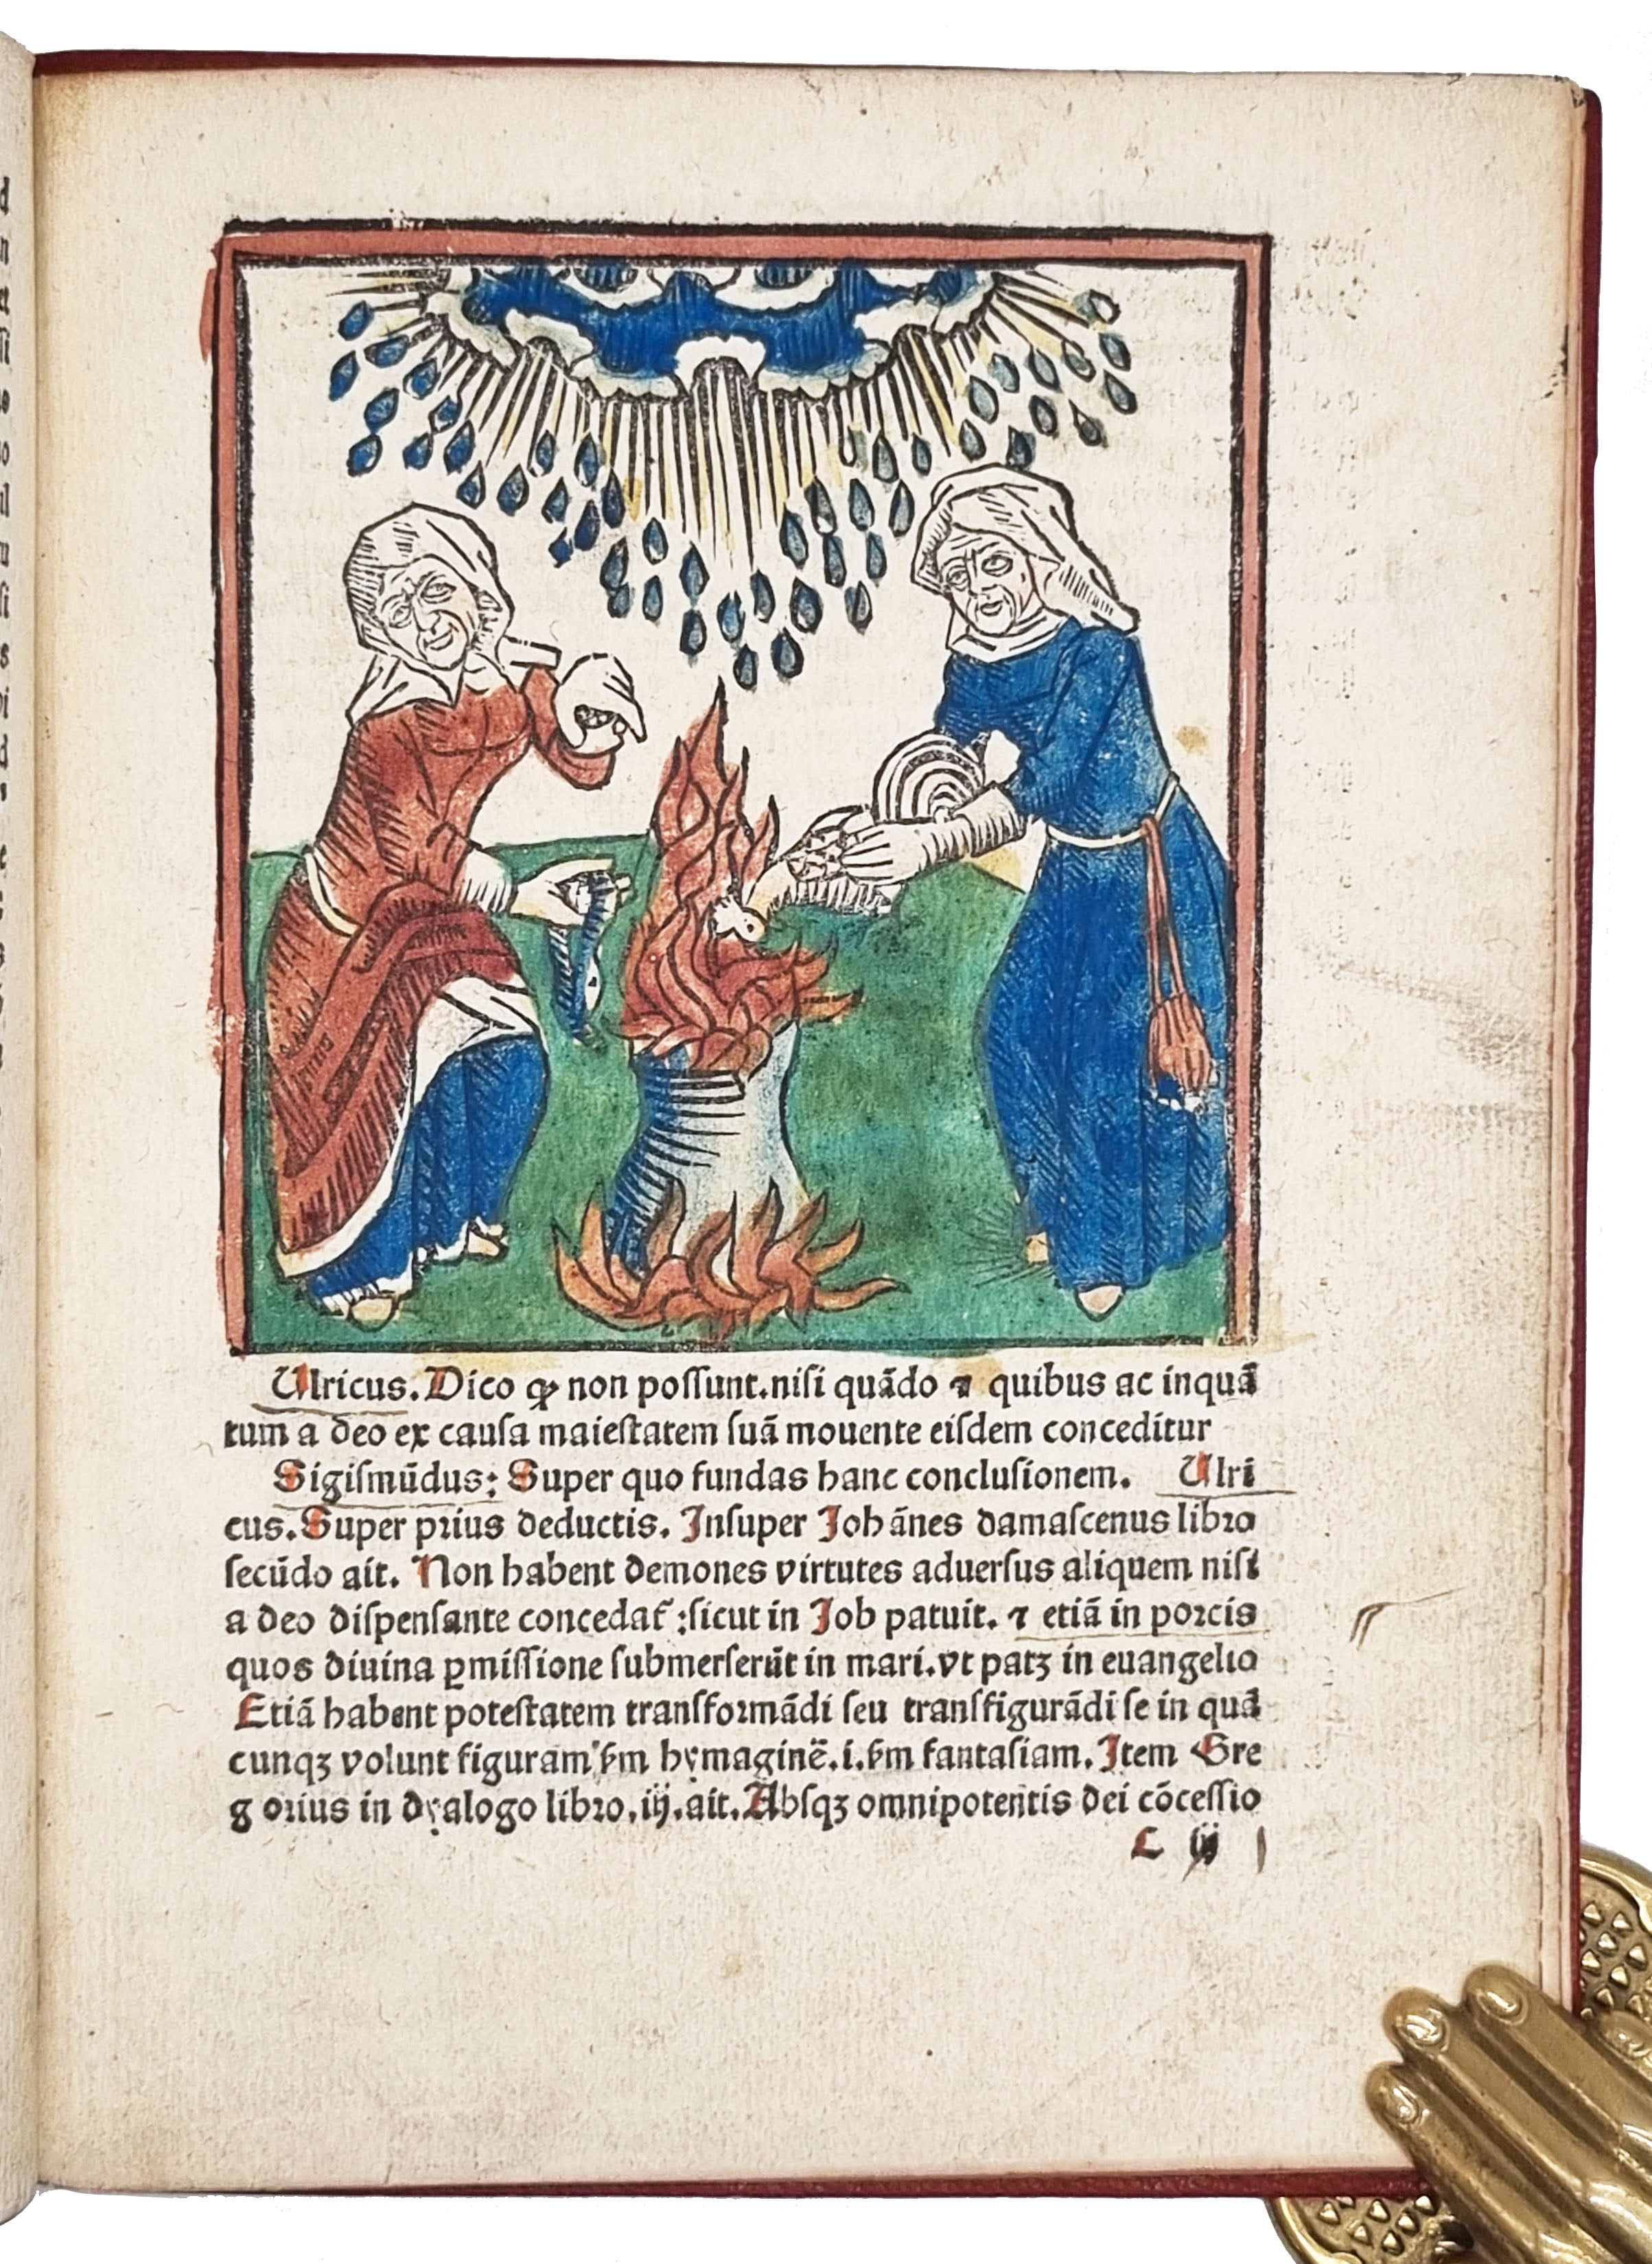 Ulricus. Dico ꝙ non poſſunt. niſi quādo ⁊ quibus ac inquā
tum a deo ex cauſa maieſtatem ſuā mouente eiſdem conceditur
Sigiſmūdus: Super quo fundas hanc concluſionem. Ulri
cus. Super prius deductis. Inſuper Johānes damaſcenus libro
ſecūdo ait. Non habent demones virtutes aduerſus aliquem niſi
a deo diſpenſante concedat᷑ : ſicut in Job patuit. ⁊ etiā in porcis
quos diuina ꝑmiſſione ſubmerſerūt in mari. vt patꝫ in euangelio
Etiā habent poteſtatem tranſformādi ſeu tranſfigurādi ſe in quā
cunqꝫ volunt figuram ẜm hymaginē .i. ẜm fantaſiam. Item Gre
g orius in dyalogo libro. iij. ait. Abſqꝫ omnipotentis dei cōceſſio
C iij